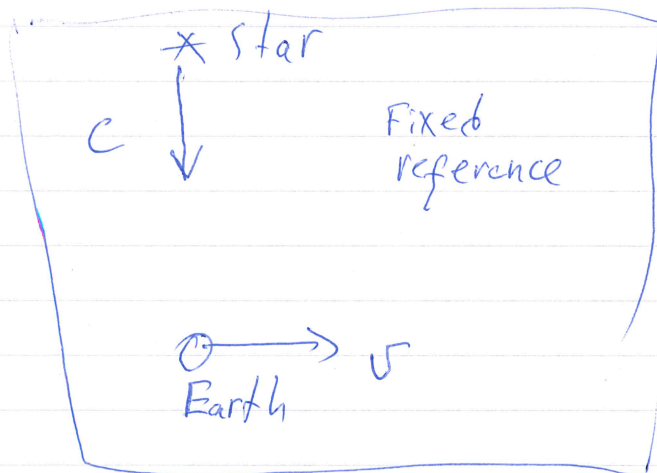 Star
C
Fixed
reference
v
Earth